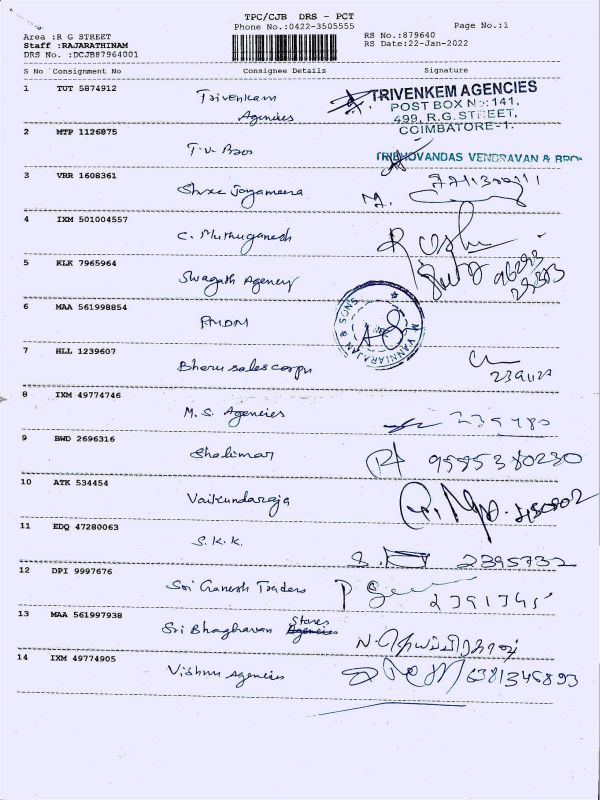 TPC/CJB DRS - PCT
Phone No.:0422-3505555
Page No.:1
Area :R G STREET
Staff :RAJARATHINAM
DRS No. :DCJB87964001
RS No.:879640
RS Date:22-Jan-2022
S No Consignment No Consignee Details Signature
1 TUT 5874912 Trivenkam
Agencies
TRIVENKEM AGENCIES
POST BOX No:141,
499, R.G. STREET,
COIMBATORE-1.
2 MTP 1126875
T.V. Bros
TRIBHOVANDAS VENDRAVAN & BROS
3 VRR 1608361
Shree Jayameena
M.
4 IXM 501004557
C. Muthuganesh
5 KLK 7965964
Swagath Agency
96293
29373
6 MAA 561998854
PMDM
M. VANNIARAJAN & SONS
7 HLL 1239607
Bheru sales corpn
8 IXM 49774746
M.S. Agencies
239480
9 BWD 2696316
Shalimar
9595380230
10 ATK 534454
Vaikundaraja
11 EDQ 47280063
S.K.K.
S.
2395732
12 DPI 9997676
Sri Ganesh Traders
2391345
13 MAA 561997938
Sri Bhaghavan Stores
14 IXM 49774905
Vishnu Agencies
6381345893